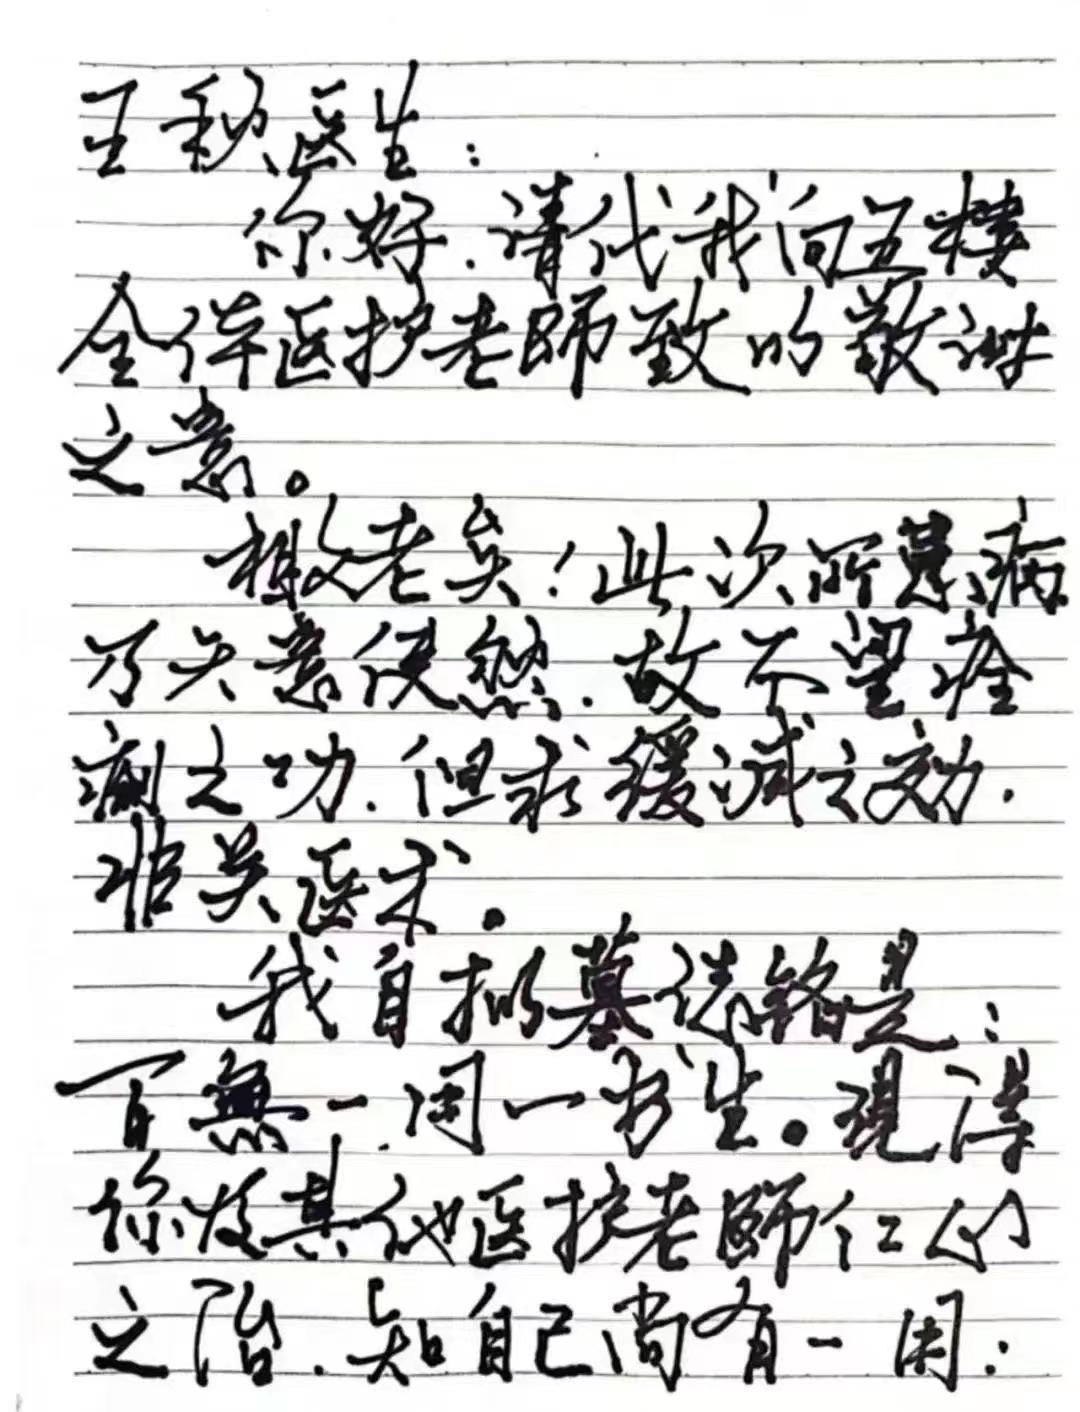 王秋医生：
你好.请代我向五楼
全体医护老師致以敬谢
之意。
相父老矣！此次所患病
乃天意使然.故不望痊
癒之功.但求缓减之効.
非关医术.
我自拟墓誌铭是：
百無一用一书生。現得
你及其他医护老師仁心
之治.知自己尚有一用：